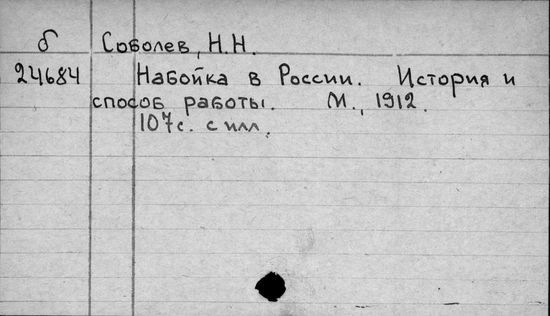 б Соболев, Н.Н.
24684 Набойка в России. История и
способ работы. М., 1912.
107с. с илл.